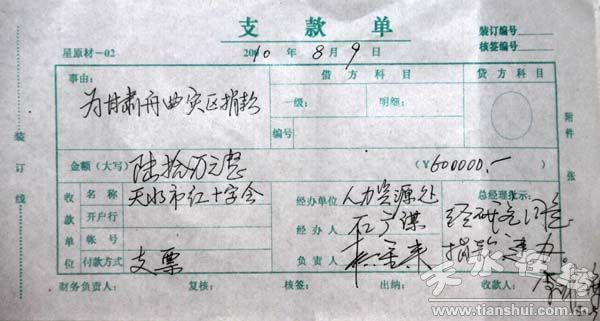 支款单
装订编号
核签编号
星原材-02
2010年8月9日
事由:
借方科目
贷方科目
为甘肃舟曲灾区捐款
一级:
明细:
编号
附件
张
装订线
金额(大写)
陆拾万元整
(¥600000.-
收款单位
名称
天水市红十字会
经办单位
人力资源处
总经理批示:
开户行
经办人
石广谋
经研究同意
帐号
负责人
捐款
付款方式
支票
财务负责人:
复核:
核签:
出纳:
收款人:
天水在线
www.tianshui.com.cn